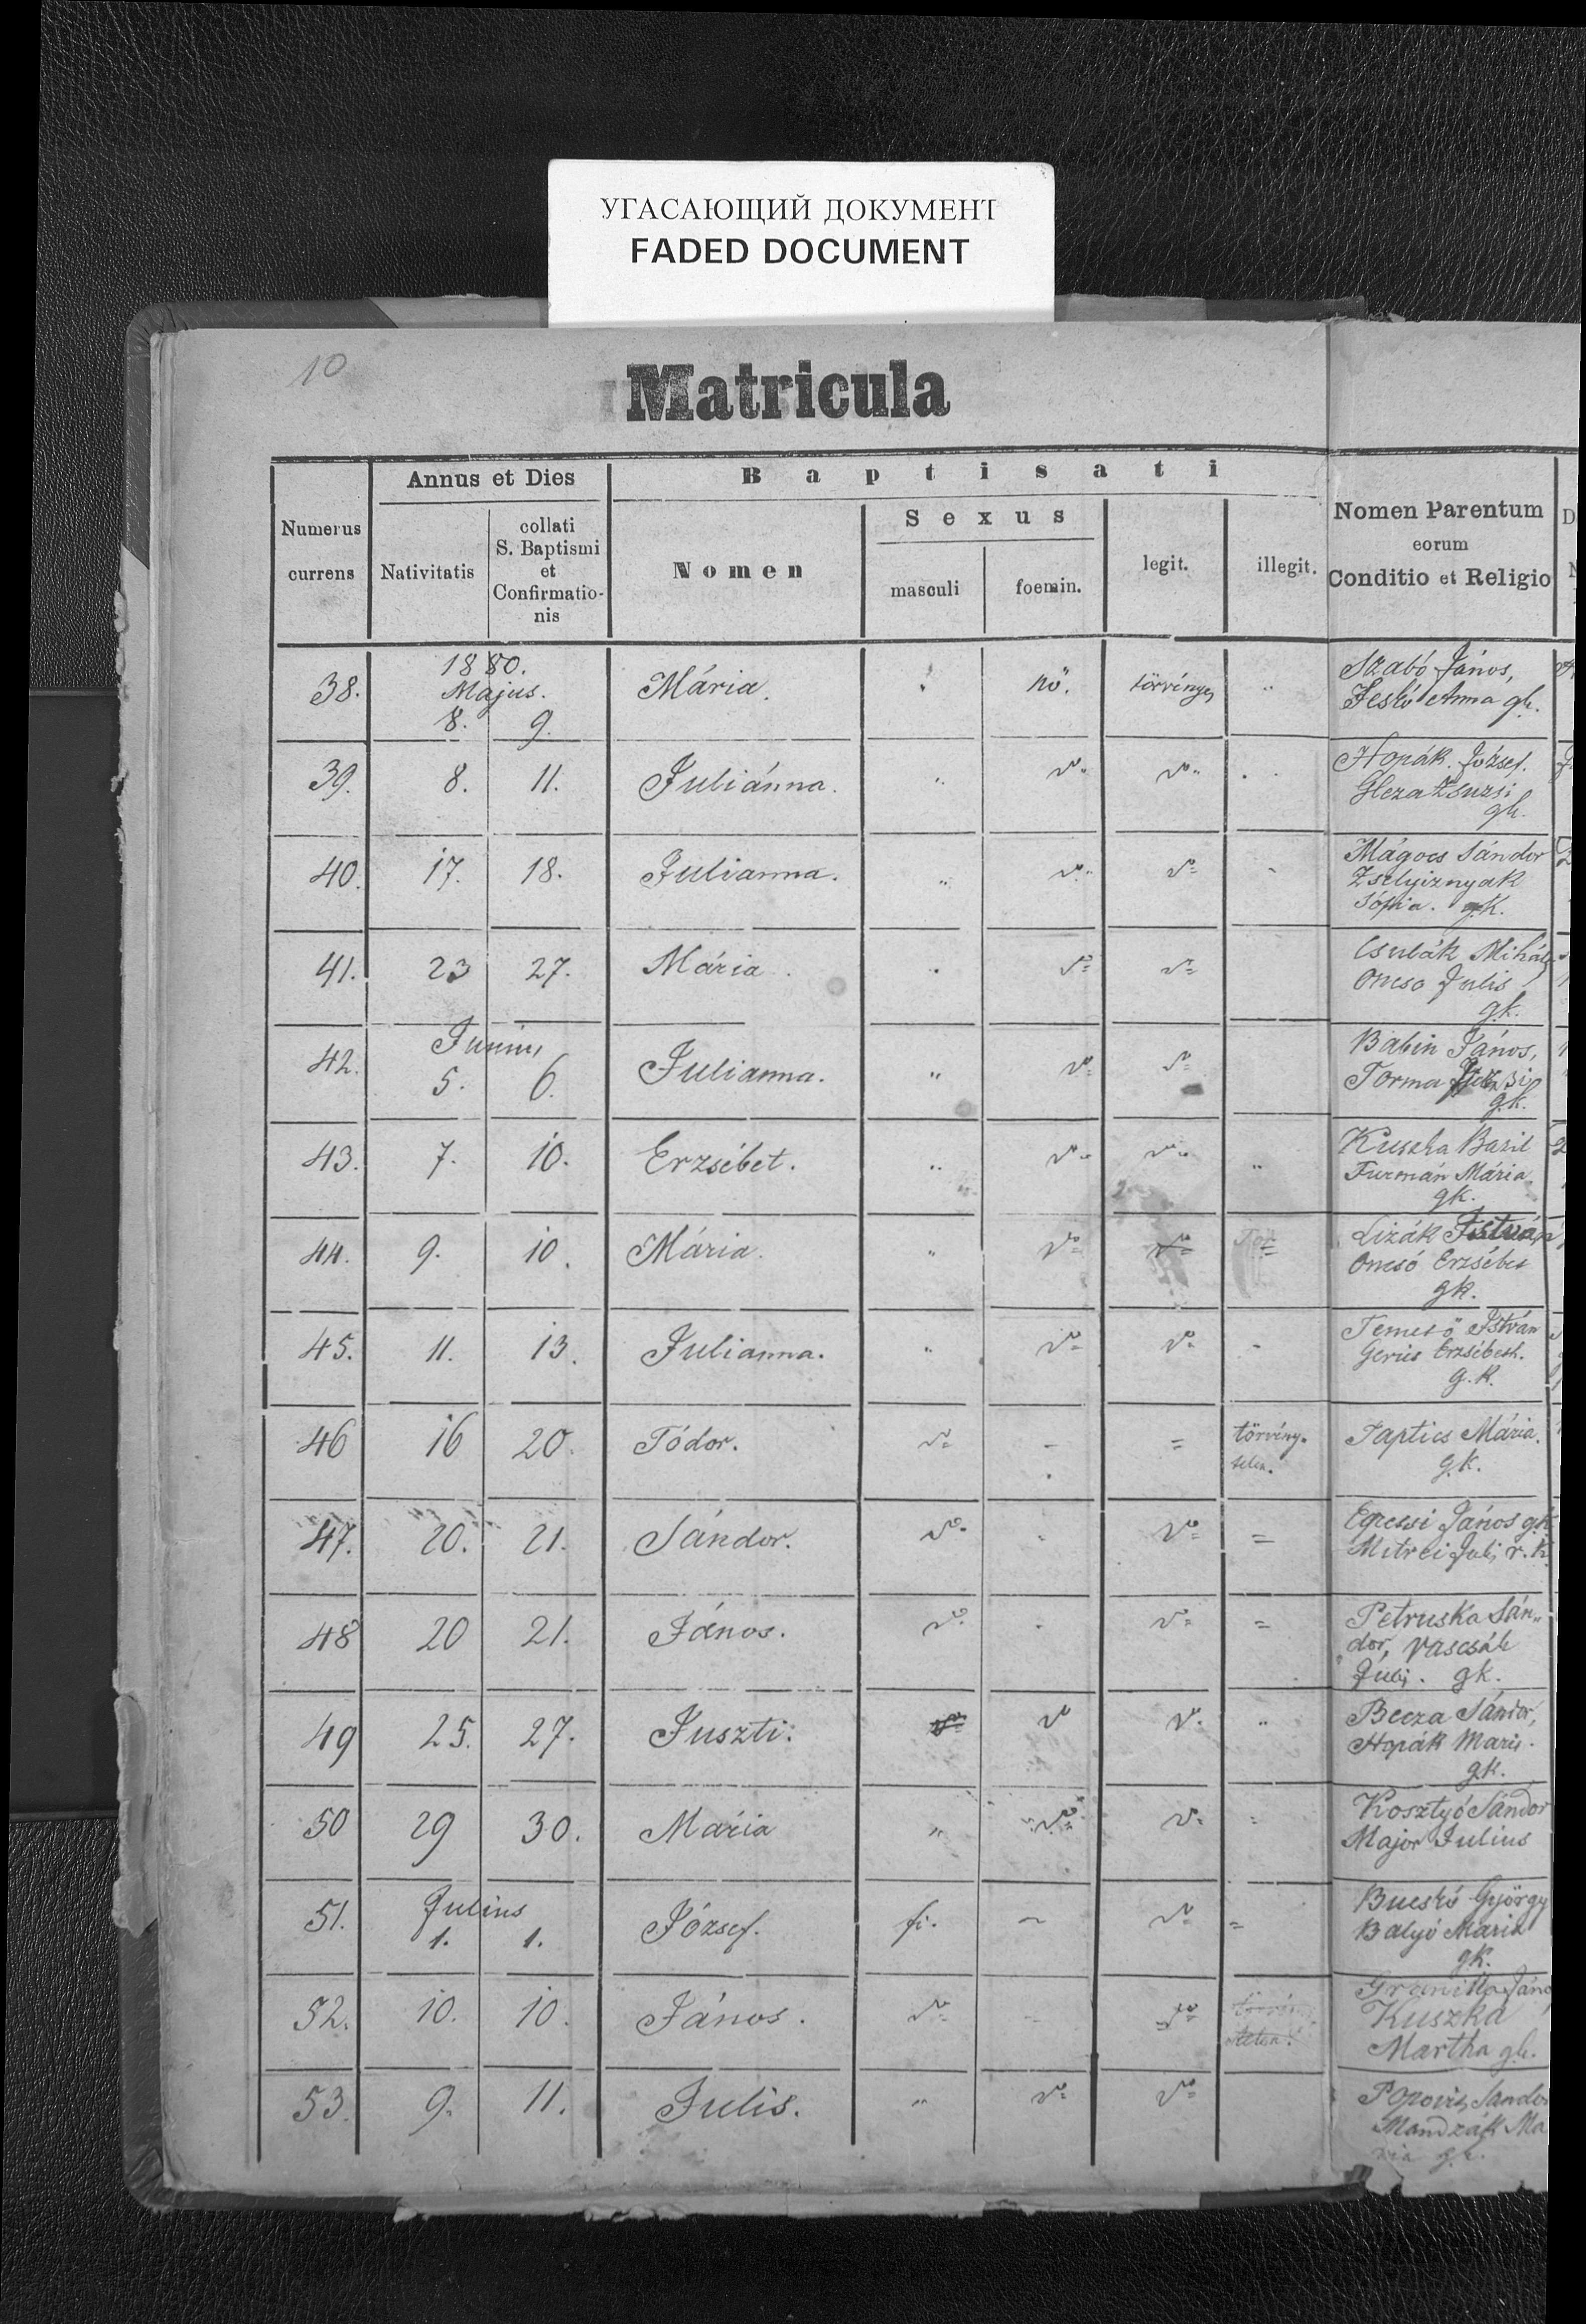 УГАСАЮЩИЙ ДОКУМЕНТ
FADED DOCUMENT
10
Matricula
Numerus currens
Annus et Dies
Nativitatis
collati S. Baptismi et Confirmatio-nis
Baptisati
Nomen
Sexus
masculi
foemin.
legit.
illegit.
Nomen Parentum
eorum
Conditio et Religio
1880.
Majus.
38. 8. 9. Mária. nö. törvényes Szabó János,
Jeskó Anna gk.
39. 8. 11. Juliánna. " vº" vº" Hopák József.
Gleza Zsuzsi
gk.
40. 17. 18. Julianna. " vº" vº= Mágocs Sándor
Zselyiznyak
Sófia. gk.
41. 23 27. Mária. vº= vº= Csulák Mihály
Oncso Julis
gk.
Junius
42. 5. 6. Julianna. " vº= vº= Babin János,
Torma
gk.
43. 7. 10. Erzsébet. " vº" vº" " Kuszka Bazil
Furmán Mária
gk.
44. 9. 10. Mária. " vº= vº= Lizák István
Oncsó Erzsébet
gk.
45. 11. 13. Julianna. " vº= vº= - István
Erzsébeth.
g.k.
46 16 20. Tódor. vº= - = törvény-
telen. Taptics Mária.
g.k.
47. 20. 21. Sándor. vº- - vº= = János g.k.
Mitrei Juli r.k.
48 20 21. János. vº. - vº= = Petruska Sán-
dor, Vascsák
Juli. gk.
49 25. 27. Juszti. vº= vº vº. " Becza Sándor,
Hopák Mari.
gk.
50 29 30. Mária " vº= vº= = Kosztyó Sándor
Major Julius
Julius
51. 1. 1. József. fi. - vº= = Bucskó György
Balyó Mária
gk.
52. 10. 10. János. vº= - vº= telen.
Kuszka
Martha gk.
53. 9. 11. Julis. " vº= vº= Popovis Sándor
Mandzák Má
ria gk.